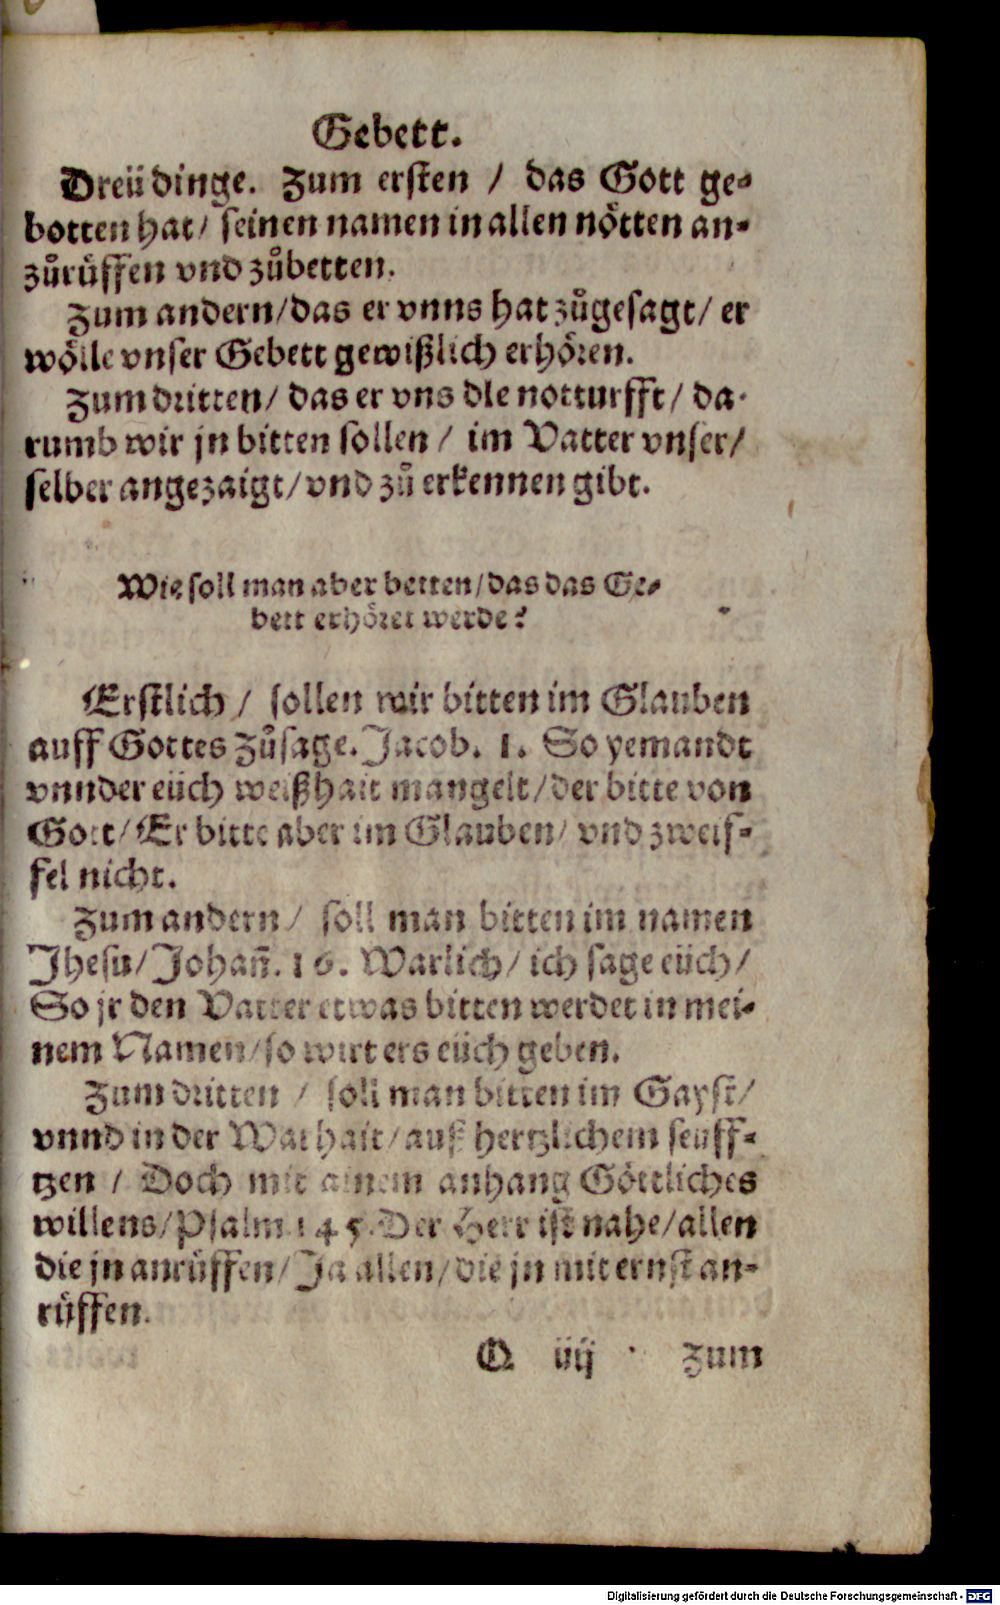 Gebett.
Dreü dinge. Zum ersten / das Gott ge-
botten hat / seinen namen in allen nötten an-
zůrüffen vnd zůbetten.
Zum andern / das er vnns hat zůgesagt / er
wölle vnser Gebett gewißlich erhören.
Zum dritten / das er vns die notturfft / da-
rumb wir jn bitten sollen / im Vatter vnser /
selber angezaigt / vnd zů erkennen gibt.
Wie soll man aber betten / das das Ge-
bett erhöret werde?
Erstlich / sollen wir bitten im Glauben
auff Gottes Zůsage. Jacob. 1. So yemandt
vnnder eüch weißhait mangelt / der bitte von
Gott / Er bitte aber im Glauben / vnd zweif-
fel nicht.
Zum andern / soll man bitten im namen
Jhesu / Johañ. 16. Warlich / ich sage eüch /
So jr den Vatter etwas bitten werdet in mei-
nem Namen / so wirt ers eüch geben.
Zum dritten / soll man bitten im Gayst /
vnnd in der Warhait / auß hertzlichem seüff-
tzen / Doch mit ainem anhang Göttliches
willens / Psalm 145. Der Herr ist nahe / allen
die jn anrüffen / Ja allen / die jn mit ernst an-
rüffen.
Q iiij Zum
Digitalisierung gefördert durch die Deutsche Forschungsgemeinschaft - DFG